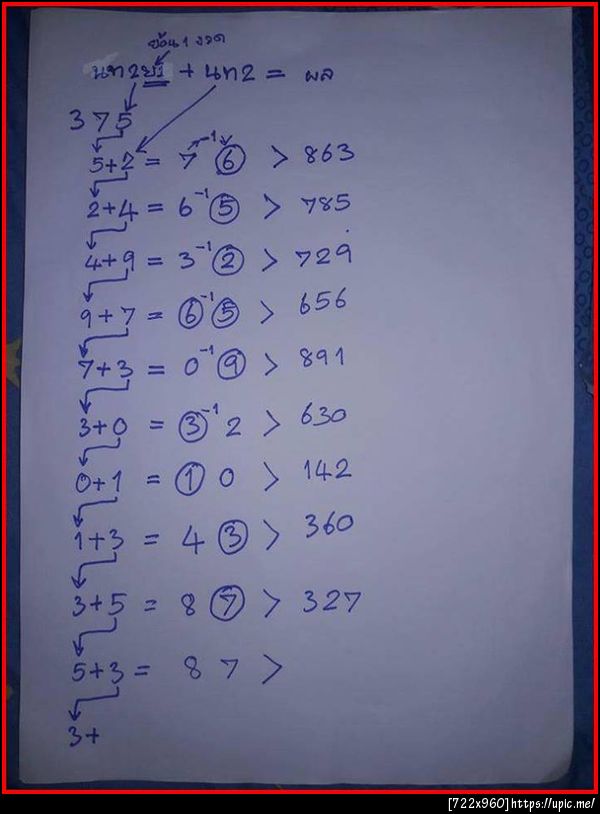 ย้อน 1 งวด
นท2ย1 + นท2 = ผล
375
5+2 = 7 -1 6 > 863
2+4 = 6 -1 5 > 785
4+9 = 3 -1 2 > 729
9+7 = 6 -1 5 > 656
7+3 = 0 -1 9 > 891
3+0 = 3 -1 2 > 630
0+1 = 1 0 > 142
1+3 = 4 3 > 360
3+5 = 8 7 > 327
5+3 = 8 7 >
3+
[722x960]https://upic.me/